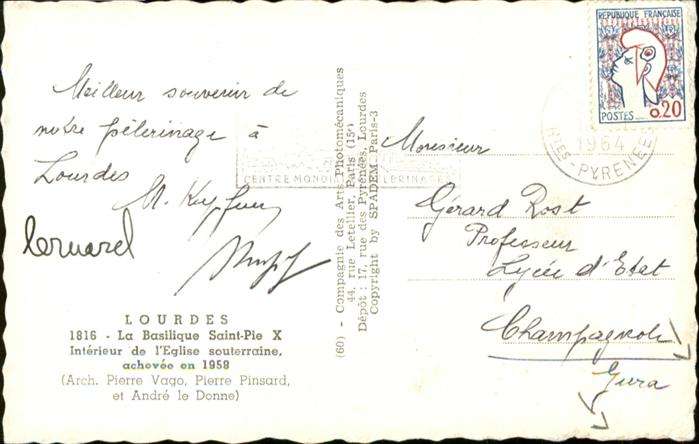 Meilleur souvenir de
notre pèlerinage à
Lourdes
LOURDES
1816 - La Basilique Saint-Pie X
Intérieur de l'Eglise souterraine,
achevée en 1958
(Arch. Pierre Vago, Pierre Pinsard,
et André le Donne)
(60) - Compagnie des Arts Photomécaniques
44, rue Letellier, Paris (15e)
Dépôt : 17, rue des Pyrénées, Lourdes
Copyright by SPADEM Paris-3
CENTRE MONDIAL
REPUBLIQUE FRANÇAISE
0.20
POSTES
1964
PYRENEES
Monsieur
Gérard Rost
Professeur
Lycée d'Etat
Champagnole
Jura